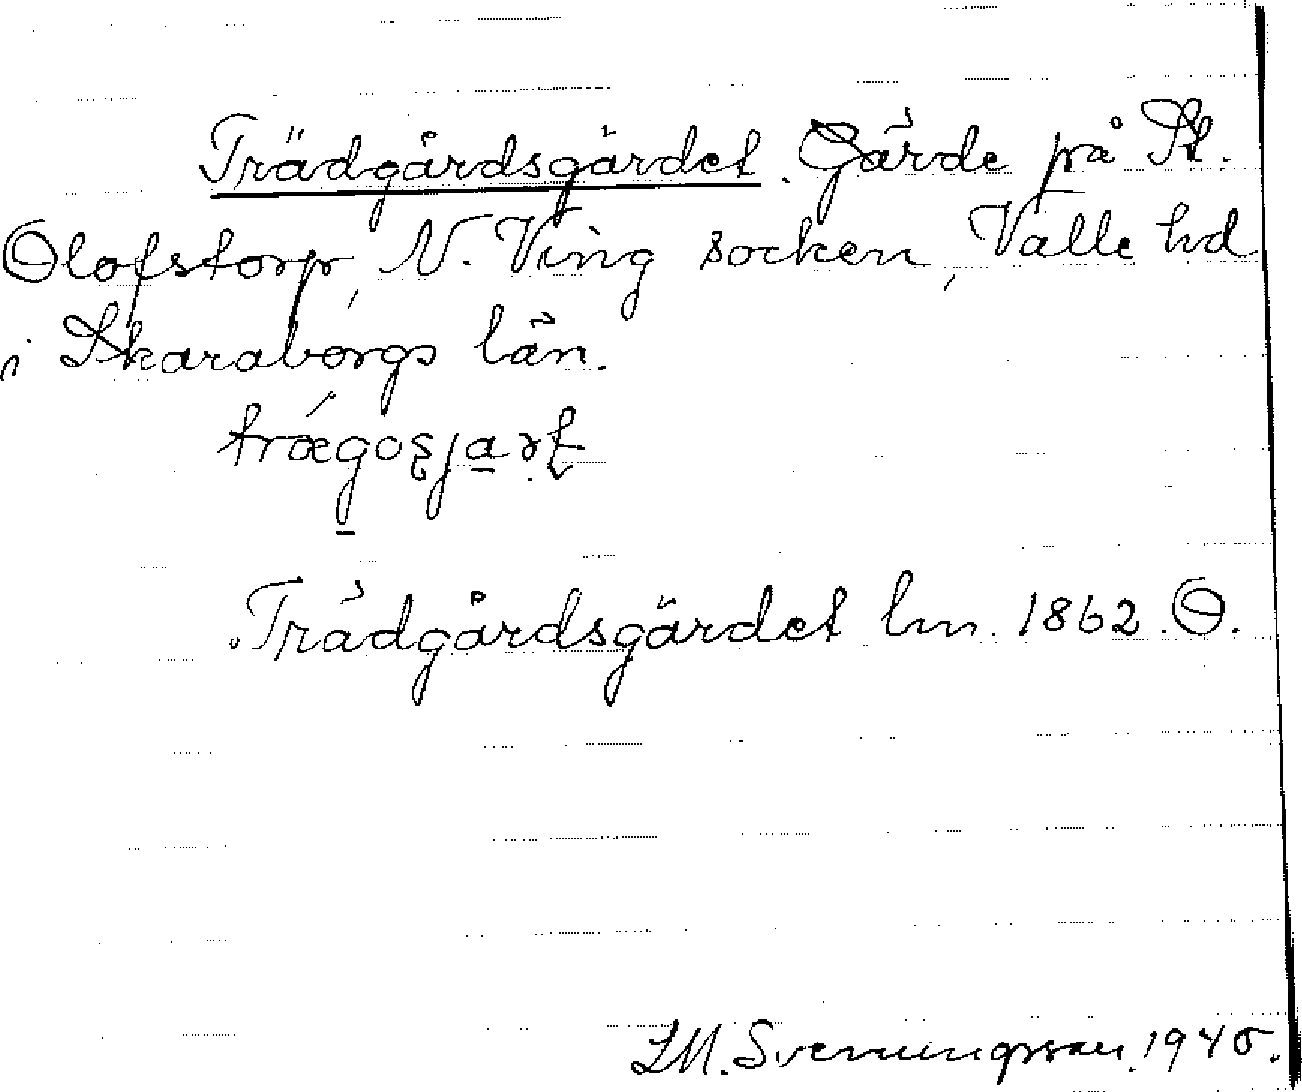 Trädgårdsgärdet. Gärde på St.
Olofstorp, N. Ving socken, Valle hd
i Skaraborgs län.
Trädgårdsgärdet lm. 1862. O.
S.M. Svenungsson. 1940.